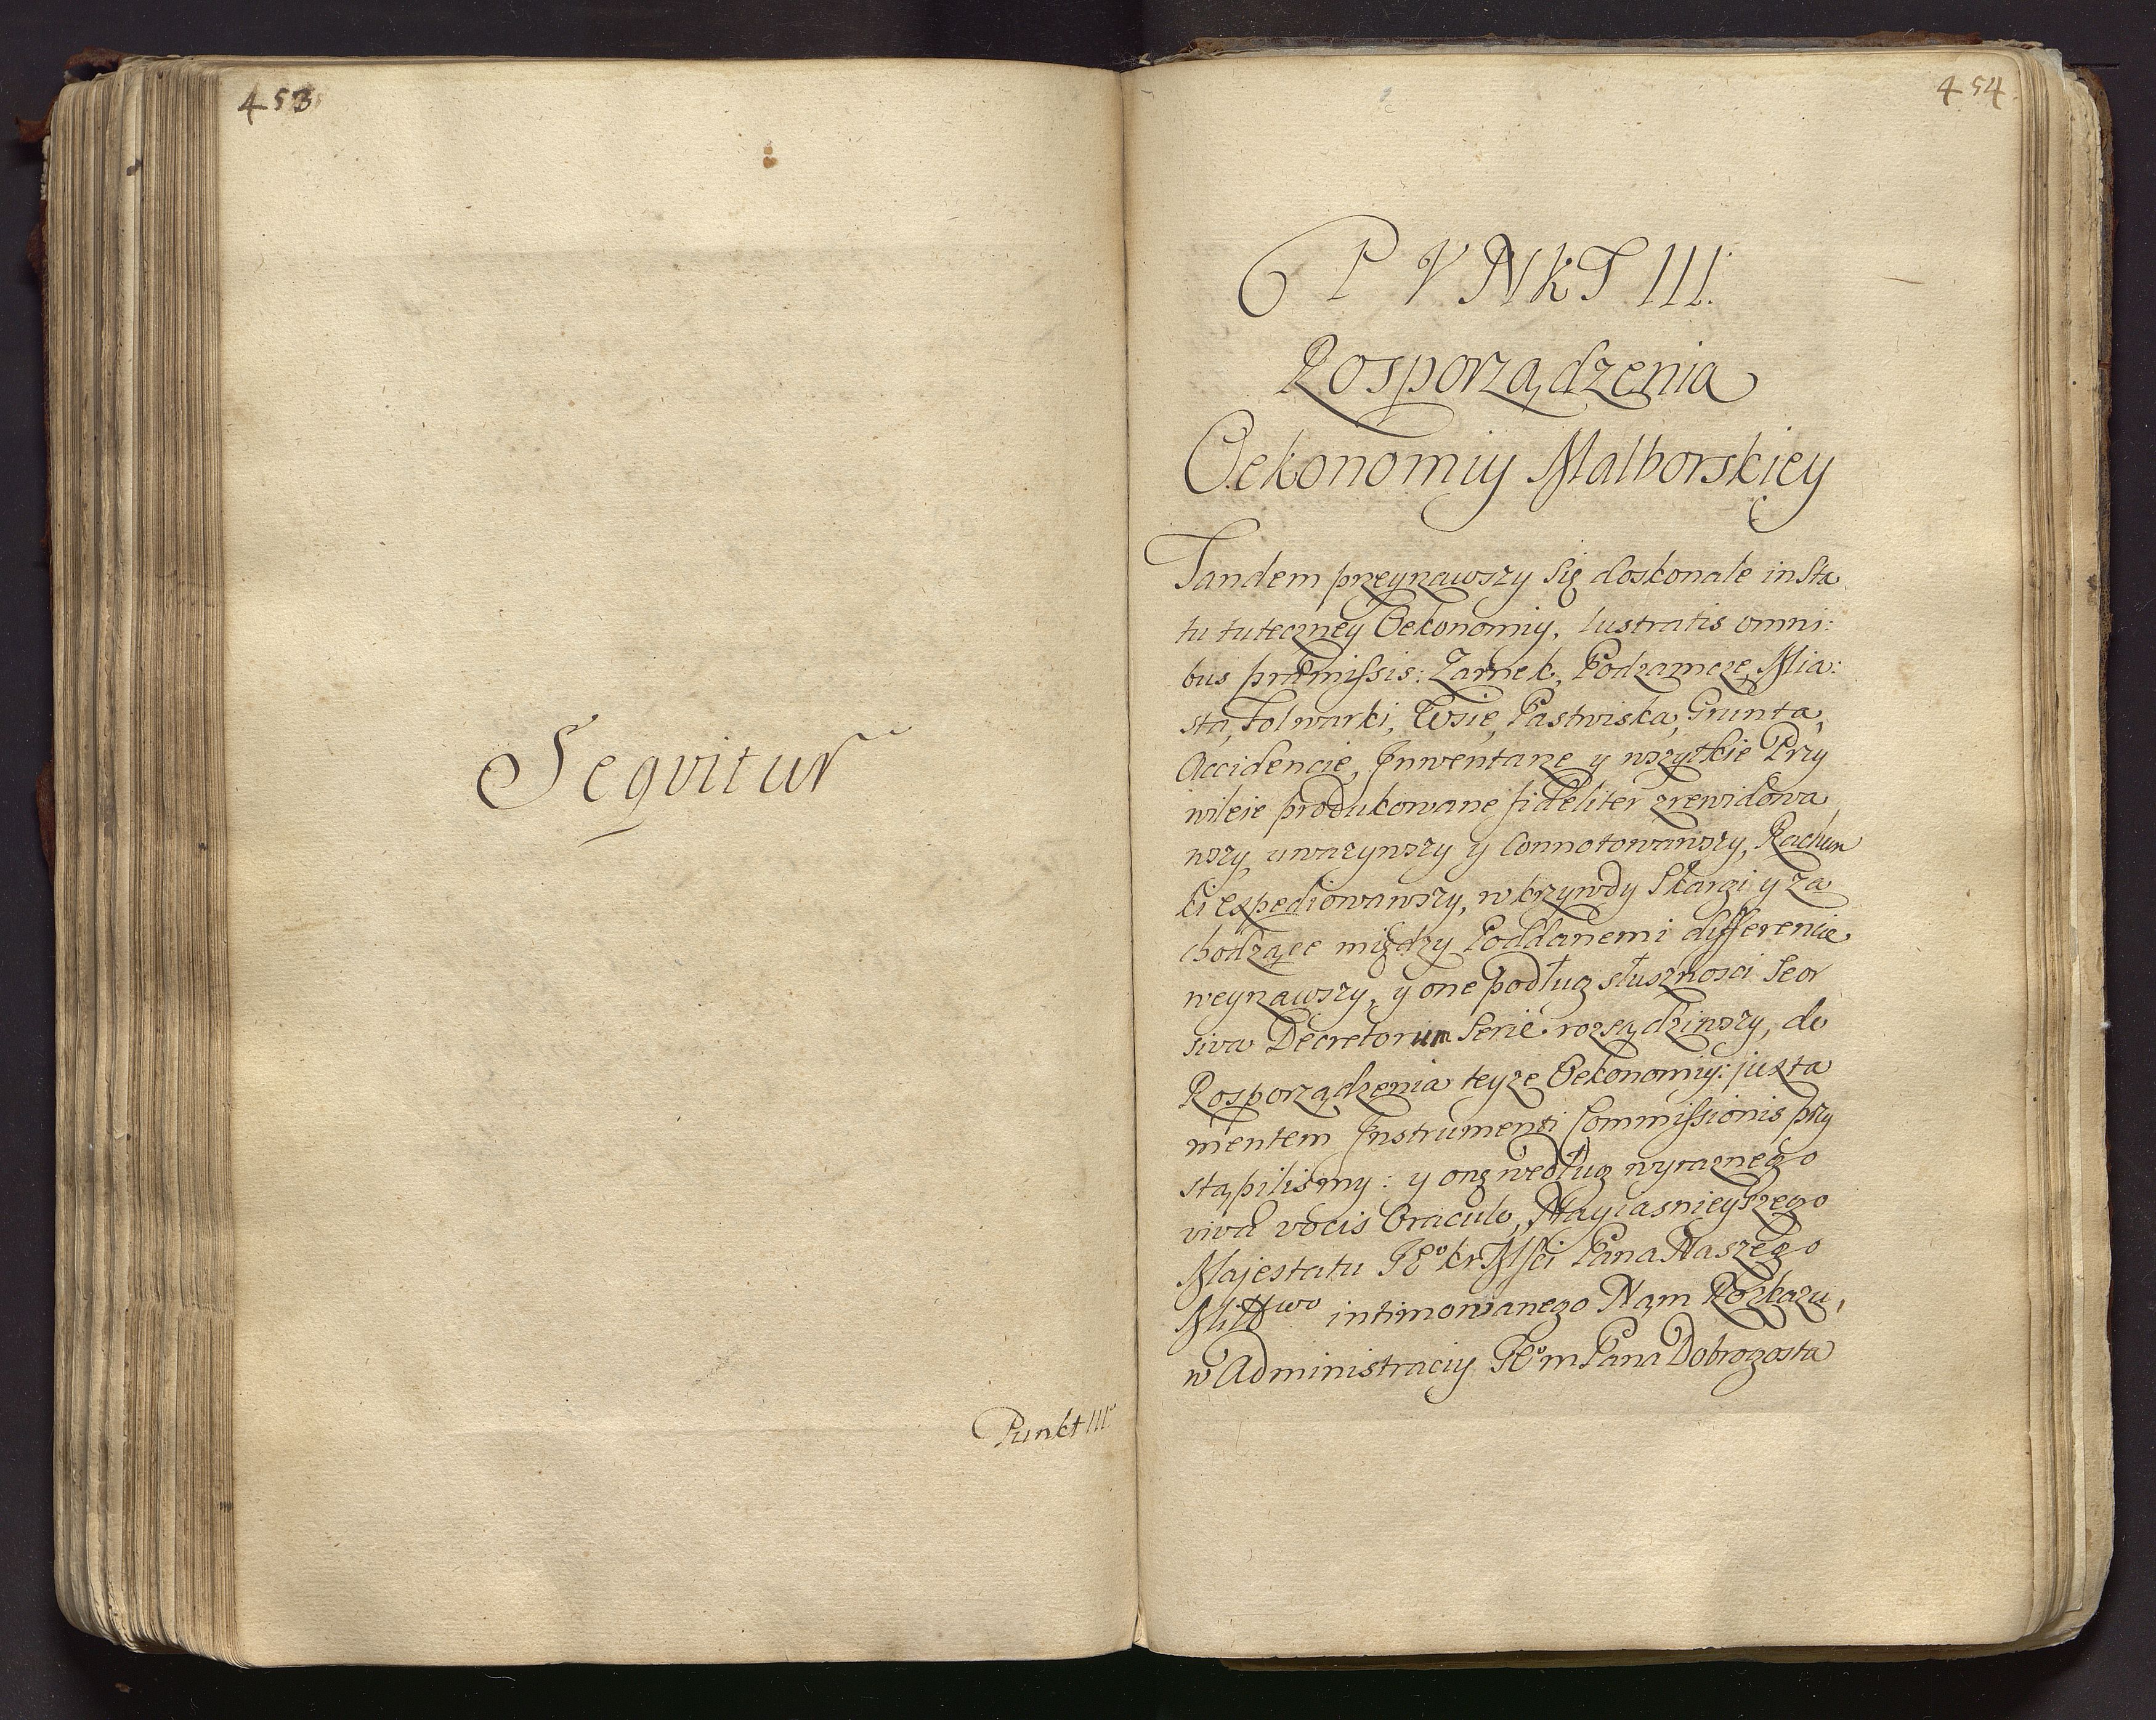 453
Seqvitur
Punkt III
454
PVNKT III.
Rosporządzenia
Oekonomiy Malborskiey
Tandem przeyzrawszy się doskonale in sta
tu tuteczney Oekonomiy, lustratis omni:
bus præmissis: Zamek, Podzamcze, Mia:
sta, Folwarki, Wsie, Pastwiska, Grunta,
Accidencie, Inwentarze y wszytkie Przy
wileie produkowane fideliter zrewidowa
wszy, uwazywszy y Connotowawszy, Rachun
ki expediowawszy, w krzywdy Skargi y za
chodzące między Poddanemi differencie
weyzrawszy, y one podług słusznosci Seor
siva Decretorum Serie rozsądziwszy, do
Rosporządzenia teyze Oekonomiy: juxta
mentem Instrumenti Commissionis przy
stąpilismy: y onę według wyraznego
viva vocis Oraculo, Nayiasnieyszego
Majestatu JEo Kr Msci Pana Naszego
intimowanego Nam Rozkazu,
w Administraciy Pana Dobrogosta